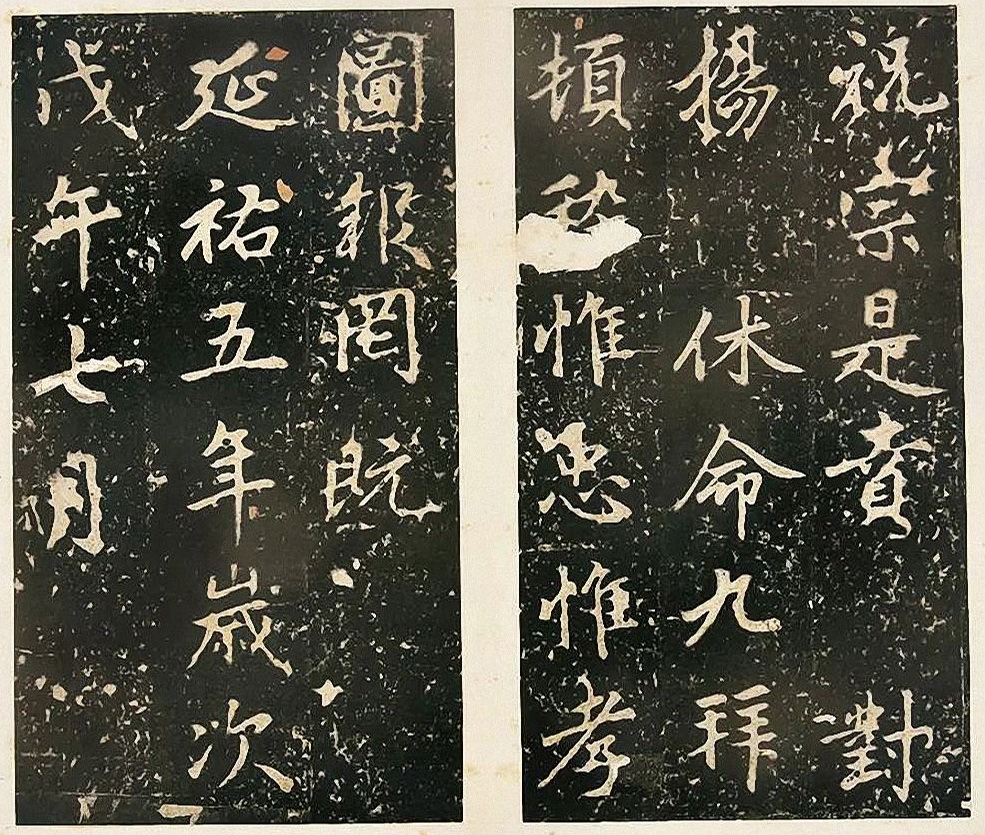 祝崇是賁對
揚休命九拜
頓首惟忠惟孝
圖報罔既
延祐五年歲次
戊午七月